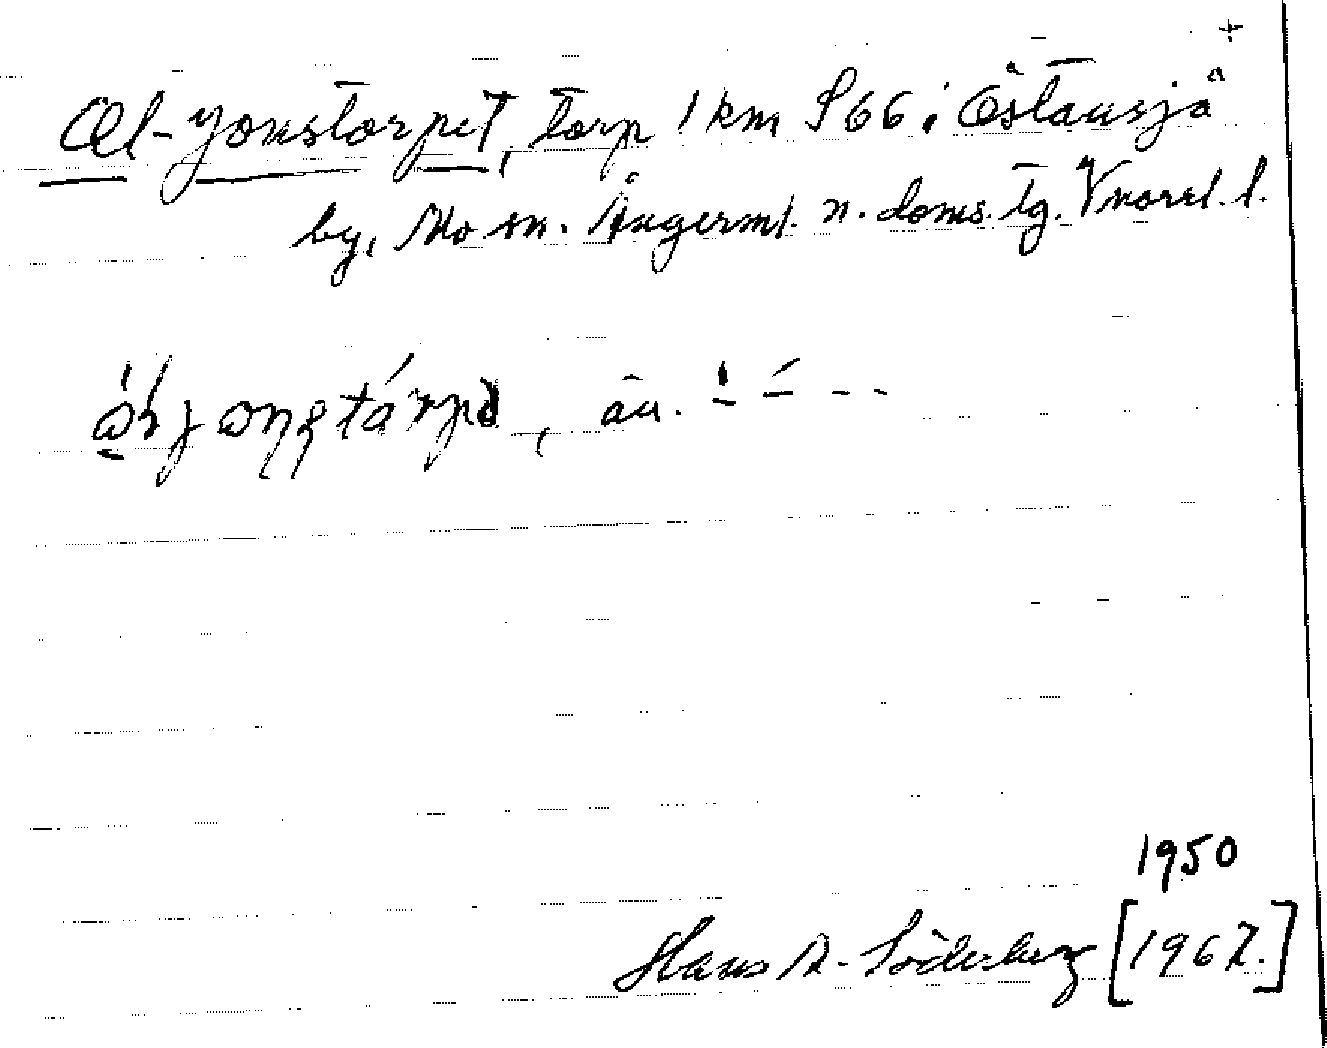 +
Ol-Jonstorpet, torp 1 km S 66 i Östansjö
by, Mo sn. Ångerml. n. doms. tg. Vnorrl. l.
, an.
1950
Hans A. Söderberg [1967.]